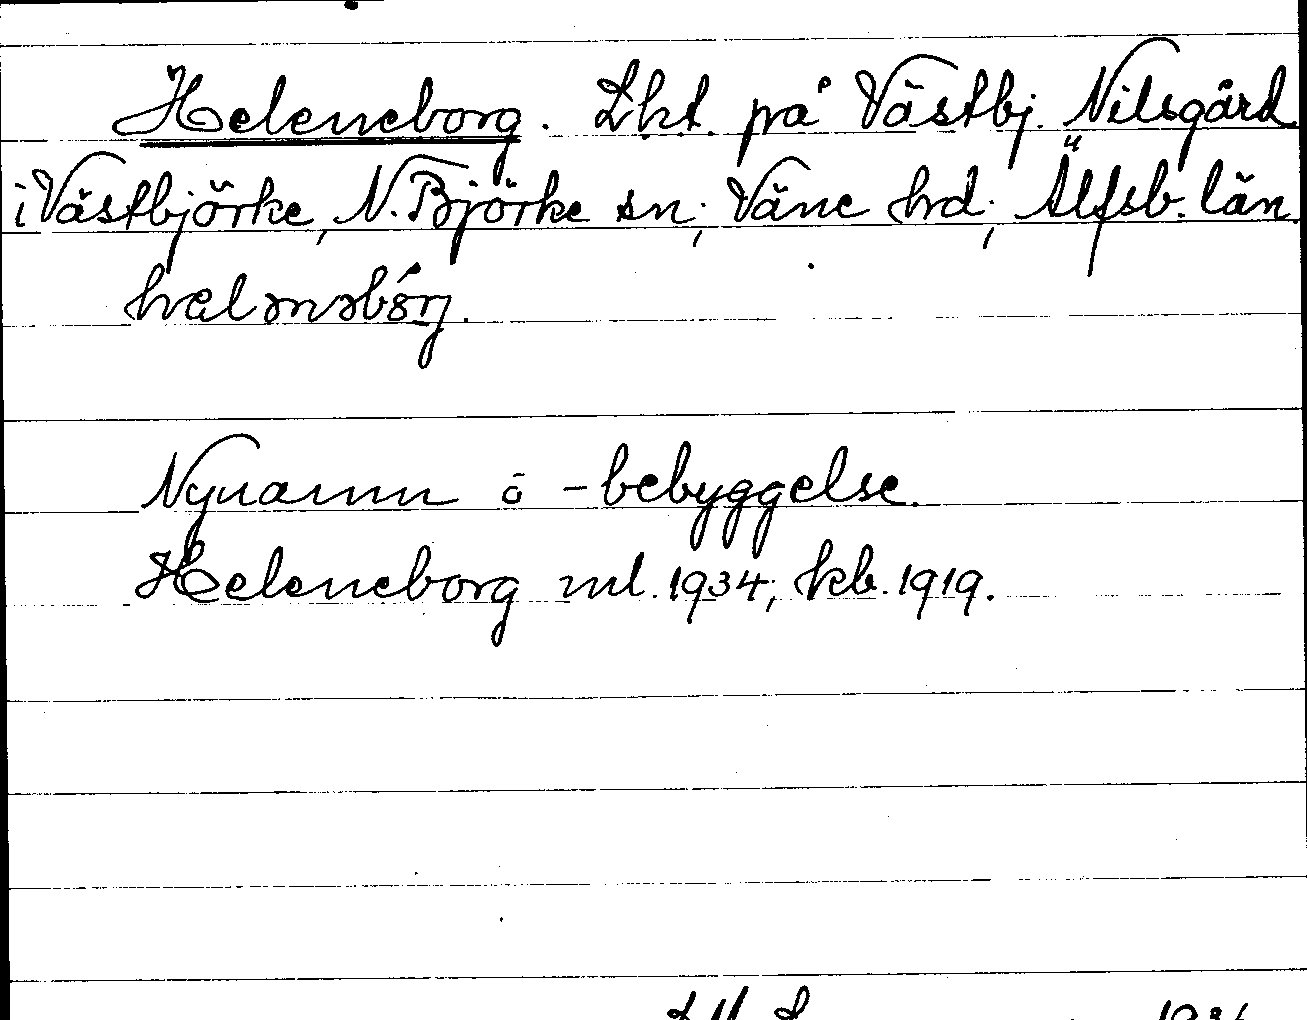 Heleneborg. Lht. på Västbj. Nilsgård
i Västbjörke, N. Björke sn; Väne hrd; Älfsb. län.
helənəbórj.
Nynamn o -bebyggelse.
Heleneborg ml. 1934; kb. 1919.